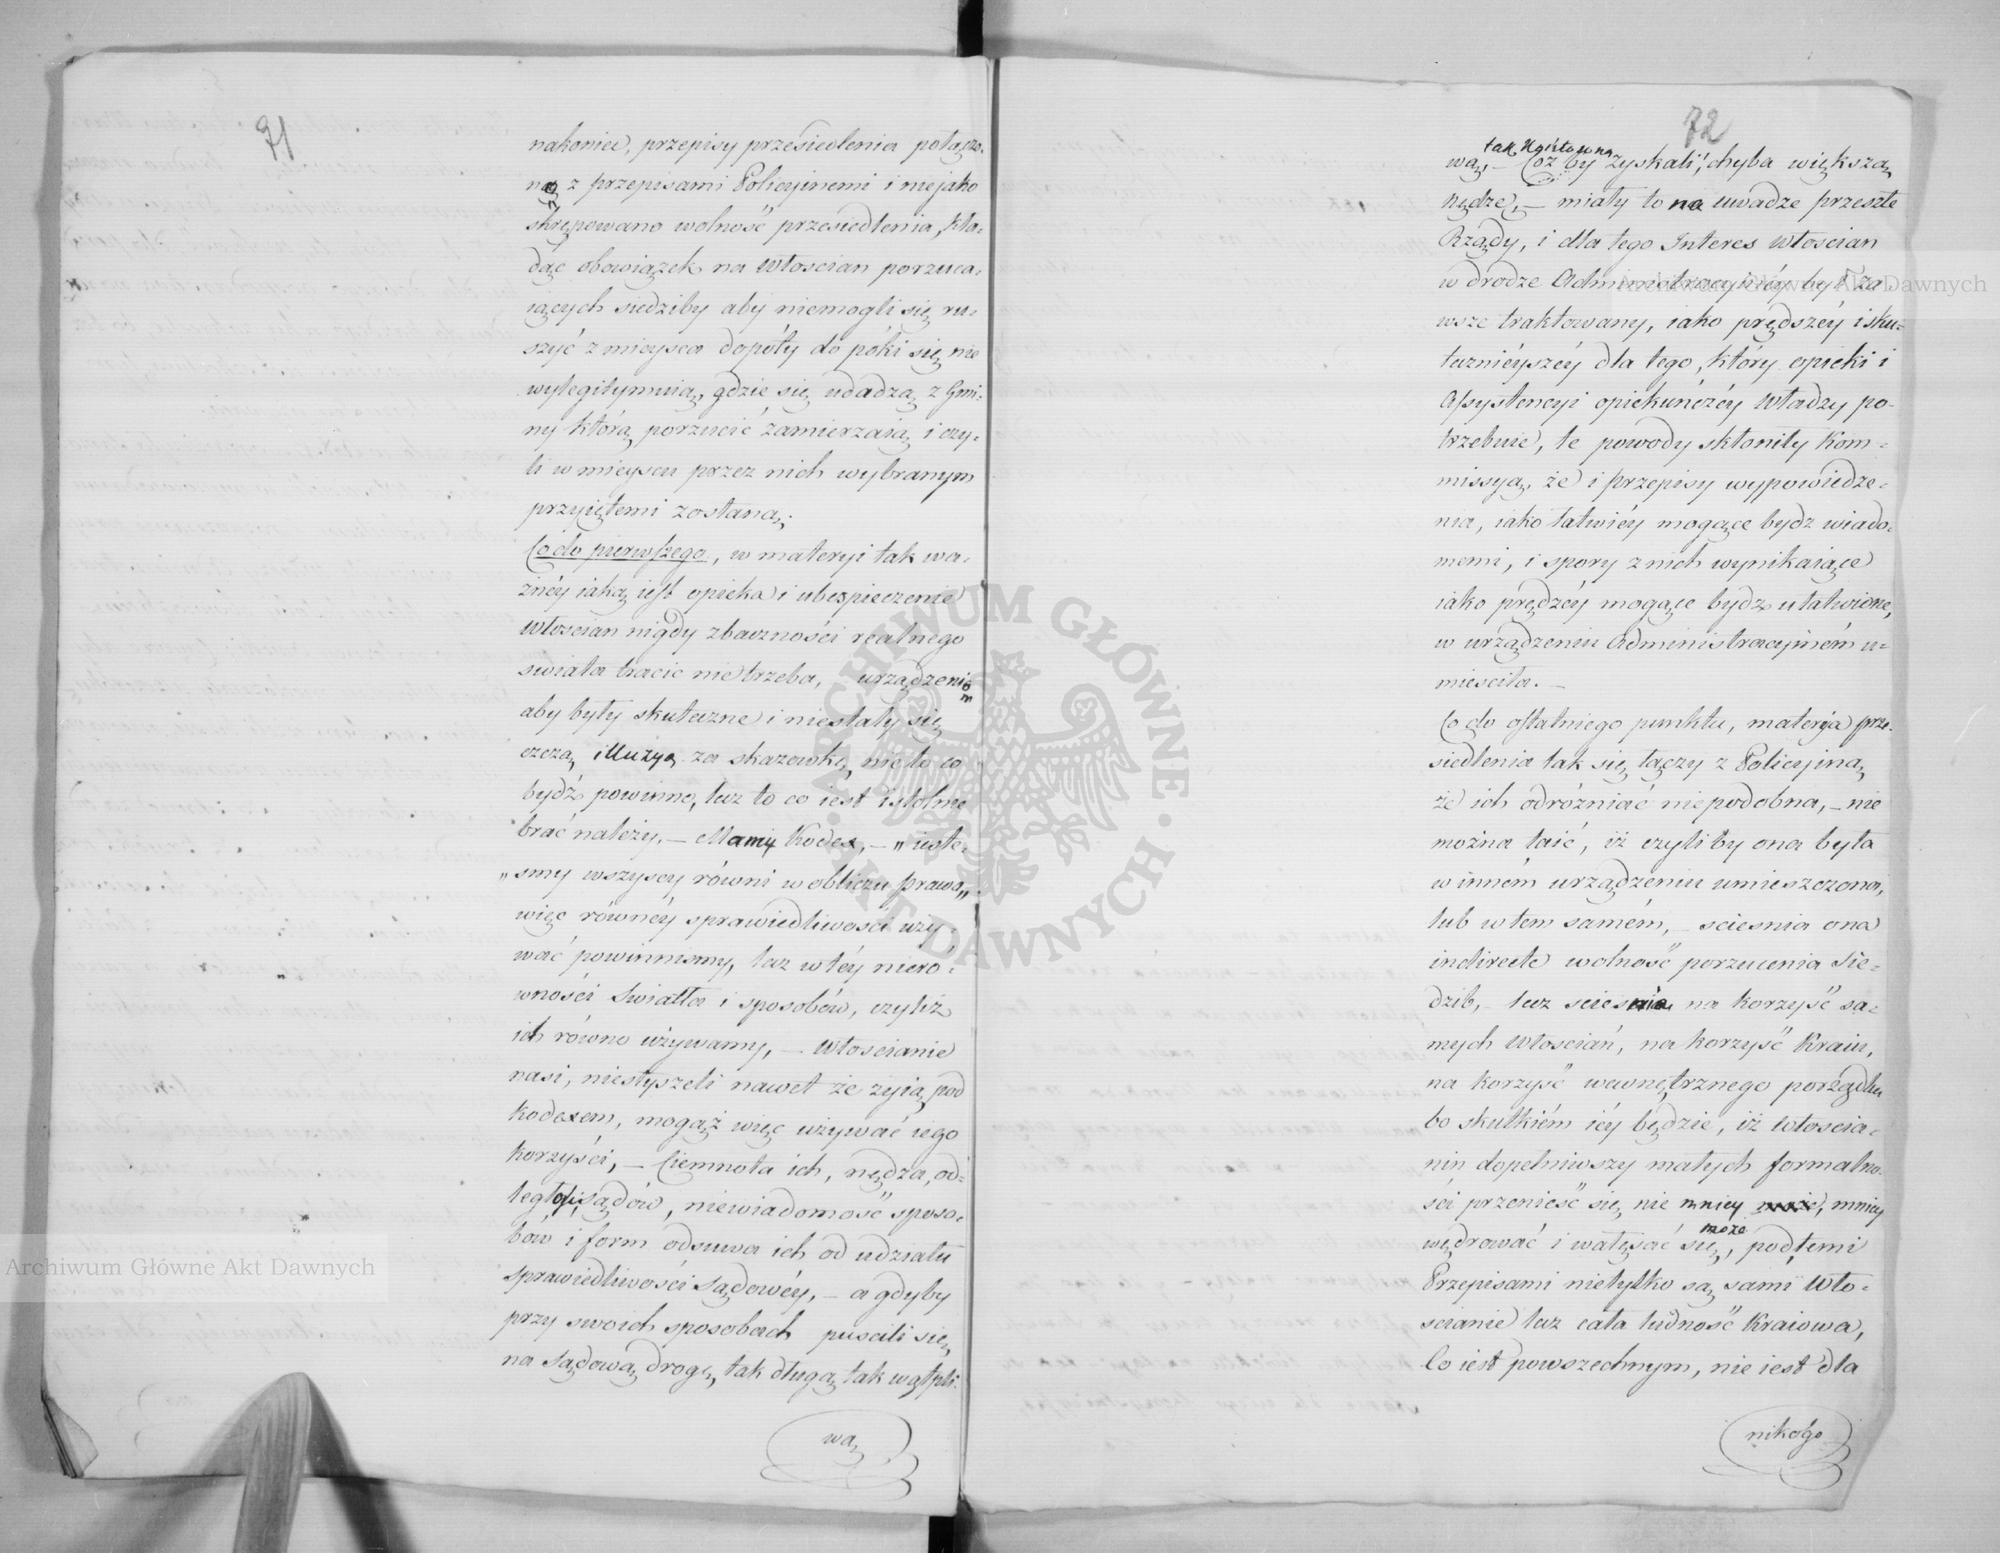 71
nakoniec, przepisy przesiedlenia połączo-
no z przepisami Policyinemi i niejako
skrępowano wolność przesiedlenia, kła-
dąc obowiązek na Włoscian porzuca-
iących siedziby aby niemogli się ru-
szyć z mieysca dopóty do póki się nie
wylegitymuią, gdzie się udadzą z Gmi-
ny którą porzucić zamierzaią i czy-
li w mieyscu przez nich wybranym
przyiętemi zostaną.
Co do pierwszego, w materyi tak wa-
żnéy iaką iest opieka i ubezpieczenie
Włoscian nigdy z baczności realnego
swiata tracic nie trzeba, urządzeniom
aby były skuteczne i niestały się
czczą illuzyą za skazowkę, nie to co
bydź powinno, lecz to co iest istotnie
brać należy. – Mamy Kodex, – „ieste-
„smy wszyscy równi w obliczu prawa„
więc równéy sprawiedliwości uży-
wać powinnismy, lecz w téy nieró-
wności Swiatła i sposobów, czyliż
ich równo używamy, – Włoscianie
nasi, niesłyszeli nawet że żyią pod
Kodexem, mogąż więc używać iego
korzyści, – Ciemnota ich, nędza, od-
ległość sądów, niewiadomość sposo-
bów i form odsuwa ich od udziału
sprawiedliwości sądowéy, – a gdyby
przy swoich sposobach puscili się,
na sądową drogę, tak długą tak wątpli-
wą
72
tak Kosztowną
wą, – Coż by zyskali! chyba większą
nędzę, – miały to na uwadze przeszłe
Rządy, i dla tego Interes Włoscian
w drodze Administracyinéy był za-
wsze traktowany, iako prędszéy i sku-
tecznieyszéy dla tego, który opieki i
Assystencyi opiekuńczéy Władzy po-
trzebuie, te powody skłoniły Kom-
missyą, że i przepisy wypowiedze-
nia, iako łatwiéy mogące bydz wiado-
memi, i spory z nich wynikaiące
iako prędzéy mogące bydz ułatwione,
w urządzeniu Administracyiném u-
miesciła. –
Co do ostatniego punktu, materya prze-
siedlenia tak się łączy z Policyiną,
że ich odróżniać niepodobna, – nie
można taić, iż czyliby ona była
w inném urządzeniu umieszczona,
lub w tem samém, – sciesnia ona
indirecte wolność porzucenia Sie-
dzib, – lecz sciesnia na korzyść sa-
mych Włoscian, na korzyść Kraiu,
na korzyść wewnętrznego porządku
bo skutkiém iéy będzie, iż Włoscia-
nin dopełniwszy małych formalno-
ści przenieść się, nie mniey może, mniey
może
wędrować i wałęsać się, pod temi
Przepisami nietylko są sami Wło-
scianie lecz cała ludność Kraiowa,
Co iest powszechnym, nie iest dla
nikogo
ARCHIWUM GŁÓWNE
AKT DAWNYCH
Archiwum Główne Akt Dawnych
Archiwum Główne Akt Dawnych